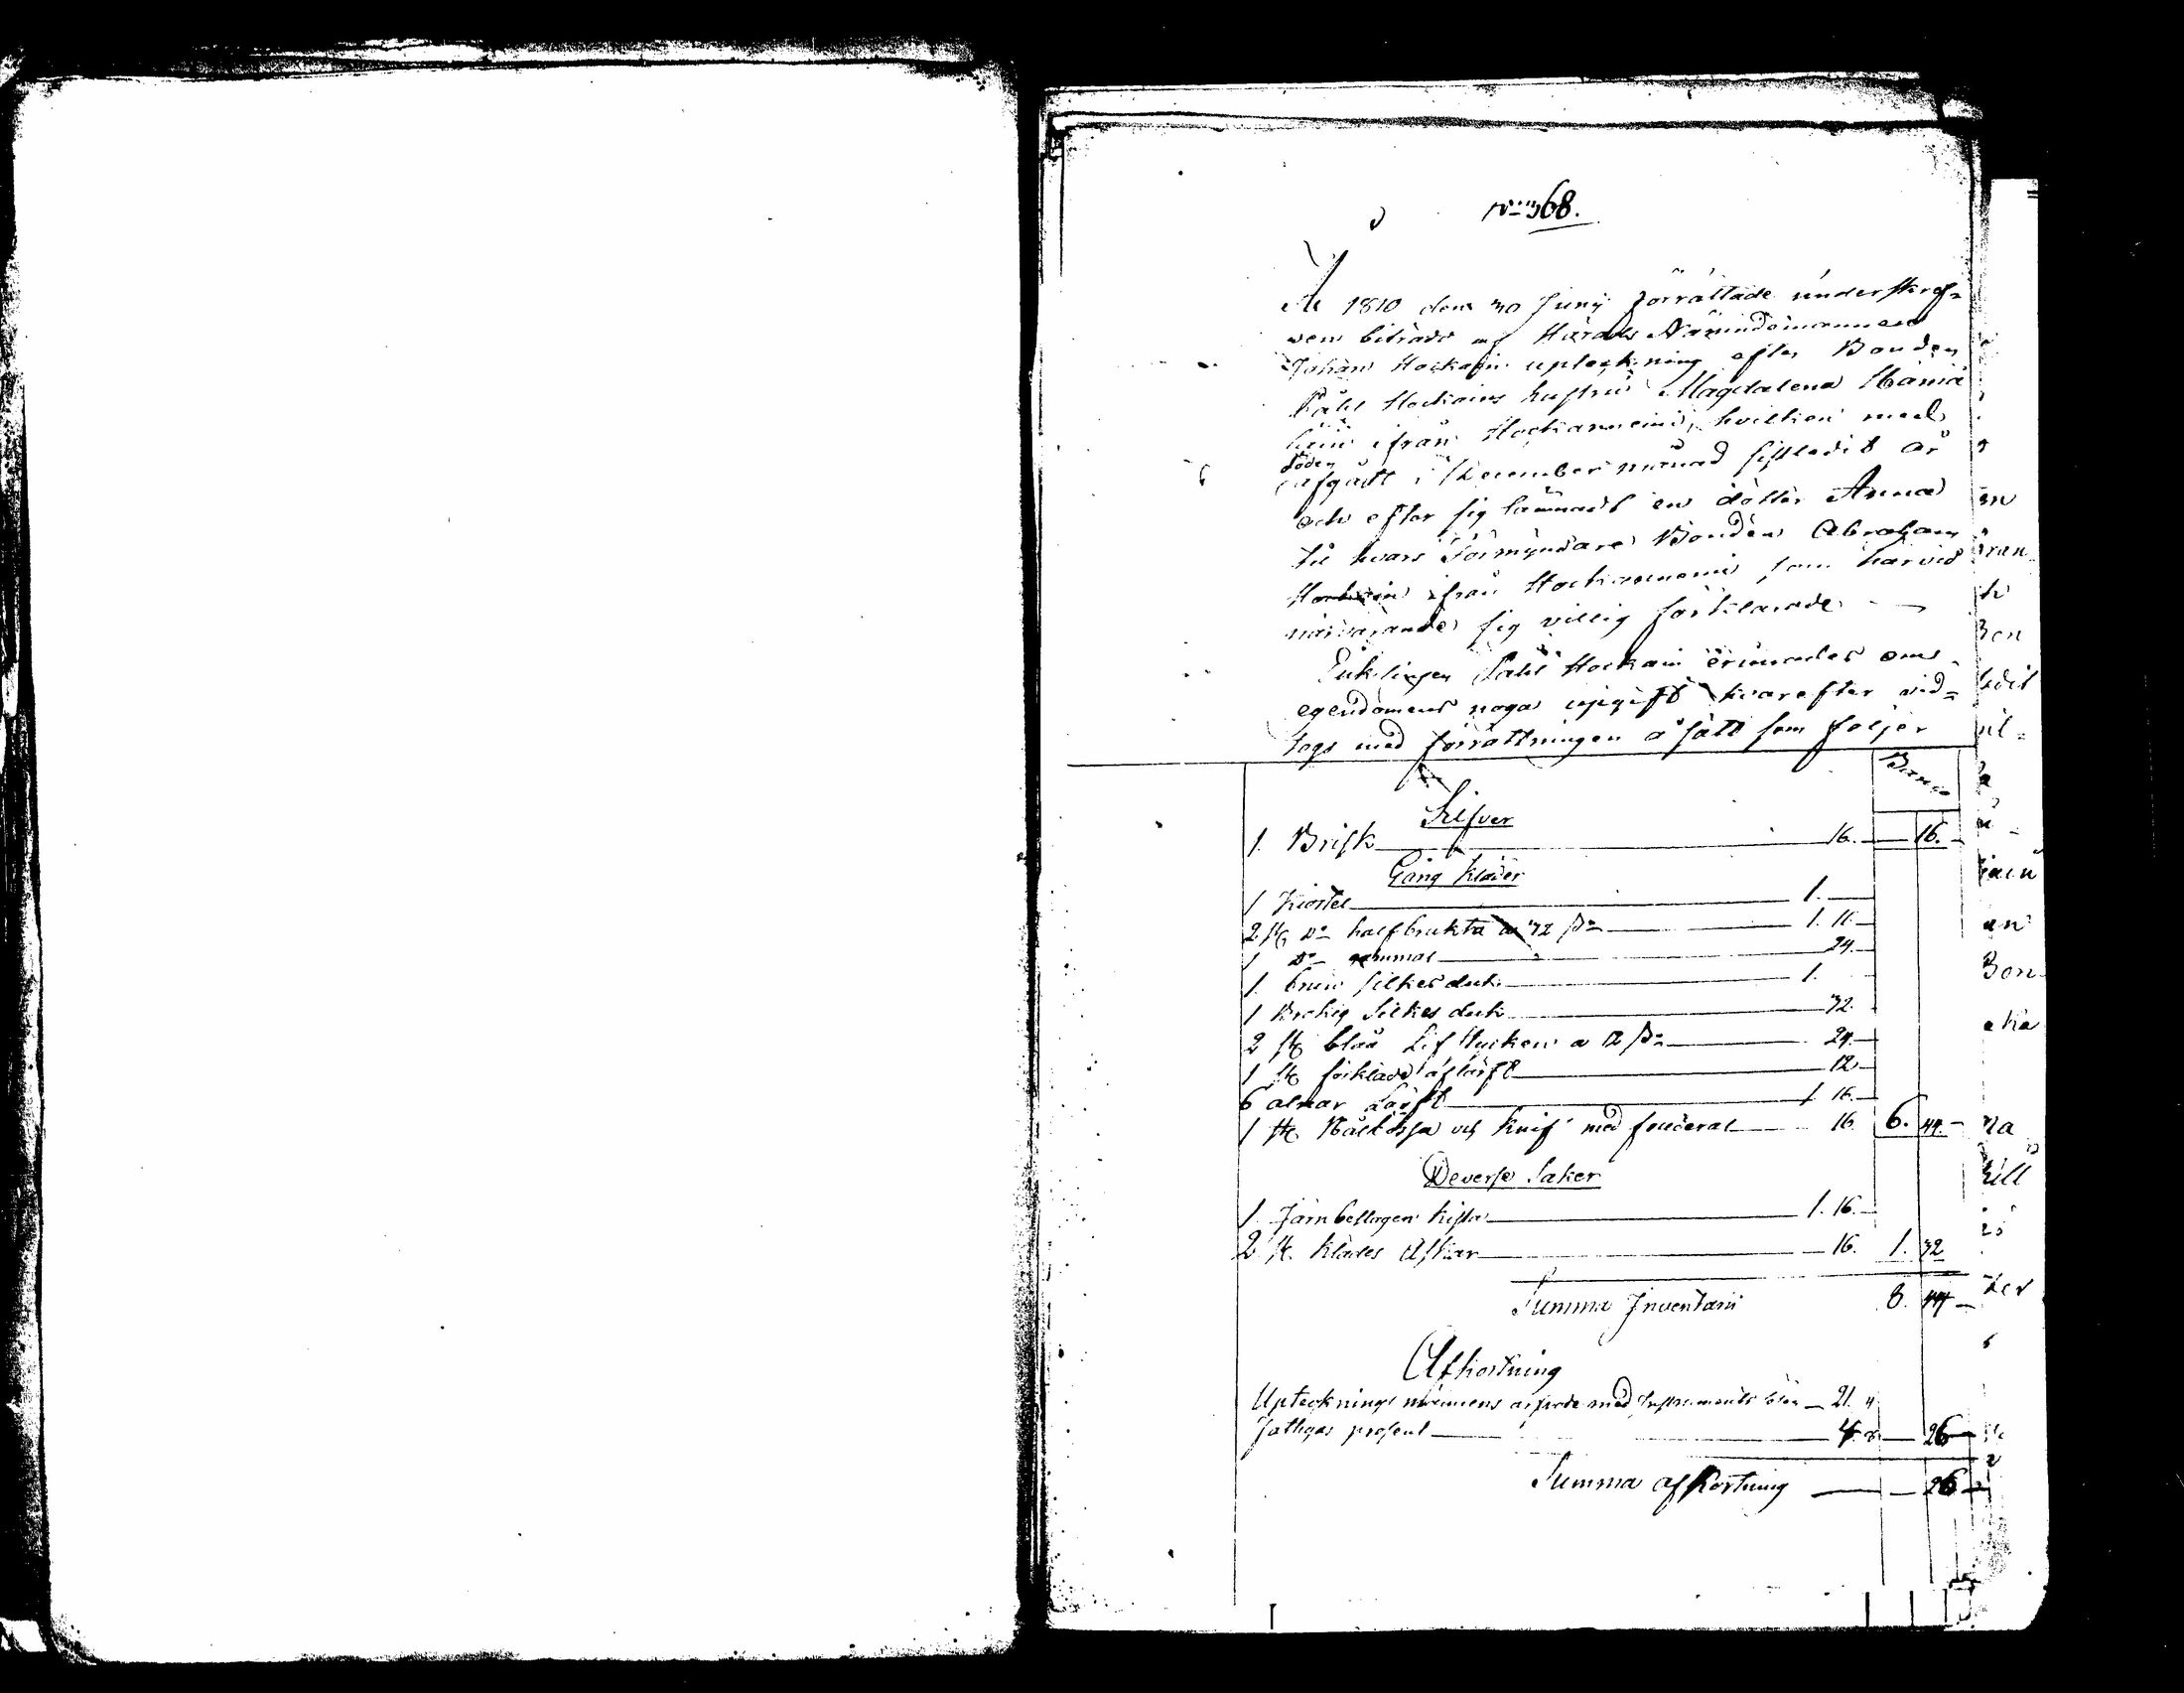 N:o 368.
År 1810 den 30 Junij förrättade underskref=
ven biträdd af Härads Nämndemannen
Johan Hockain upteckning efter Bonden
Påhl Hockains hustru Magdalena
ifrån Hockanniemi, hvilken med
döden
afgått i December månad sistledit år
och efter sig lämnadt en dotter Anna
til hvars Förmyndare Bonden Abraham
Hockain ifrån Hockanniemi som härvid
närvarande sig villig förklarade
Enklingen Påhl Hockain erinrades om
egendomens noga upgift hvarefter vid=
togs med förrättningen å sätt som följer
Banco
Silfver
1. Brisk 16. 16.
Gång kläder
1 Kiortel 1.
2 st D:o half brukta a 32 s: 1. 16
1 D:o gammal 24.
1. brun silkes duk 1.
1 Brokig Silkes duk 32.
2 st blåa Lifstycken a 12 s: 24
1 st förkläde af lärft 12
6 alnar Lärft 1 16.
1 st Nåldosa och Knif med fouderal 16 6. 44.
Deverse Saker
1. Järnbeslagen kista 1. 16.
2 st. klädes Askar 16. 1. 32
Summa Inventarii 8. 44
Afkortning
Upteknings männens arfvode med 21.
Fattigas procent 4. 26
Summa afkortning 26